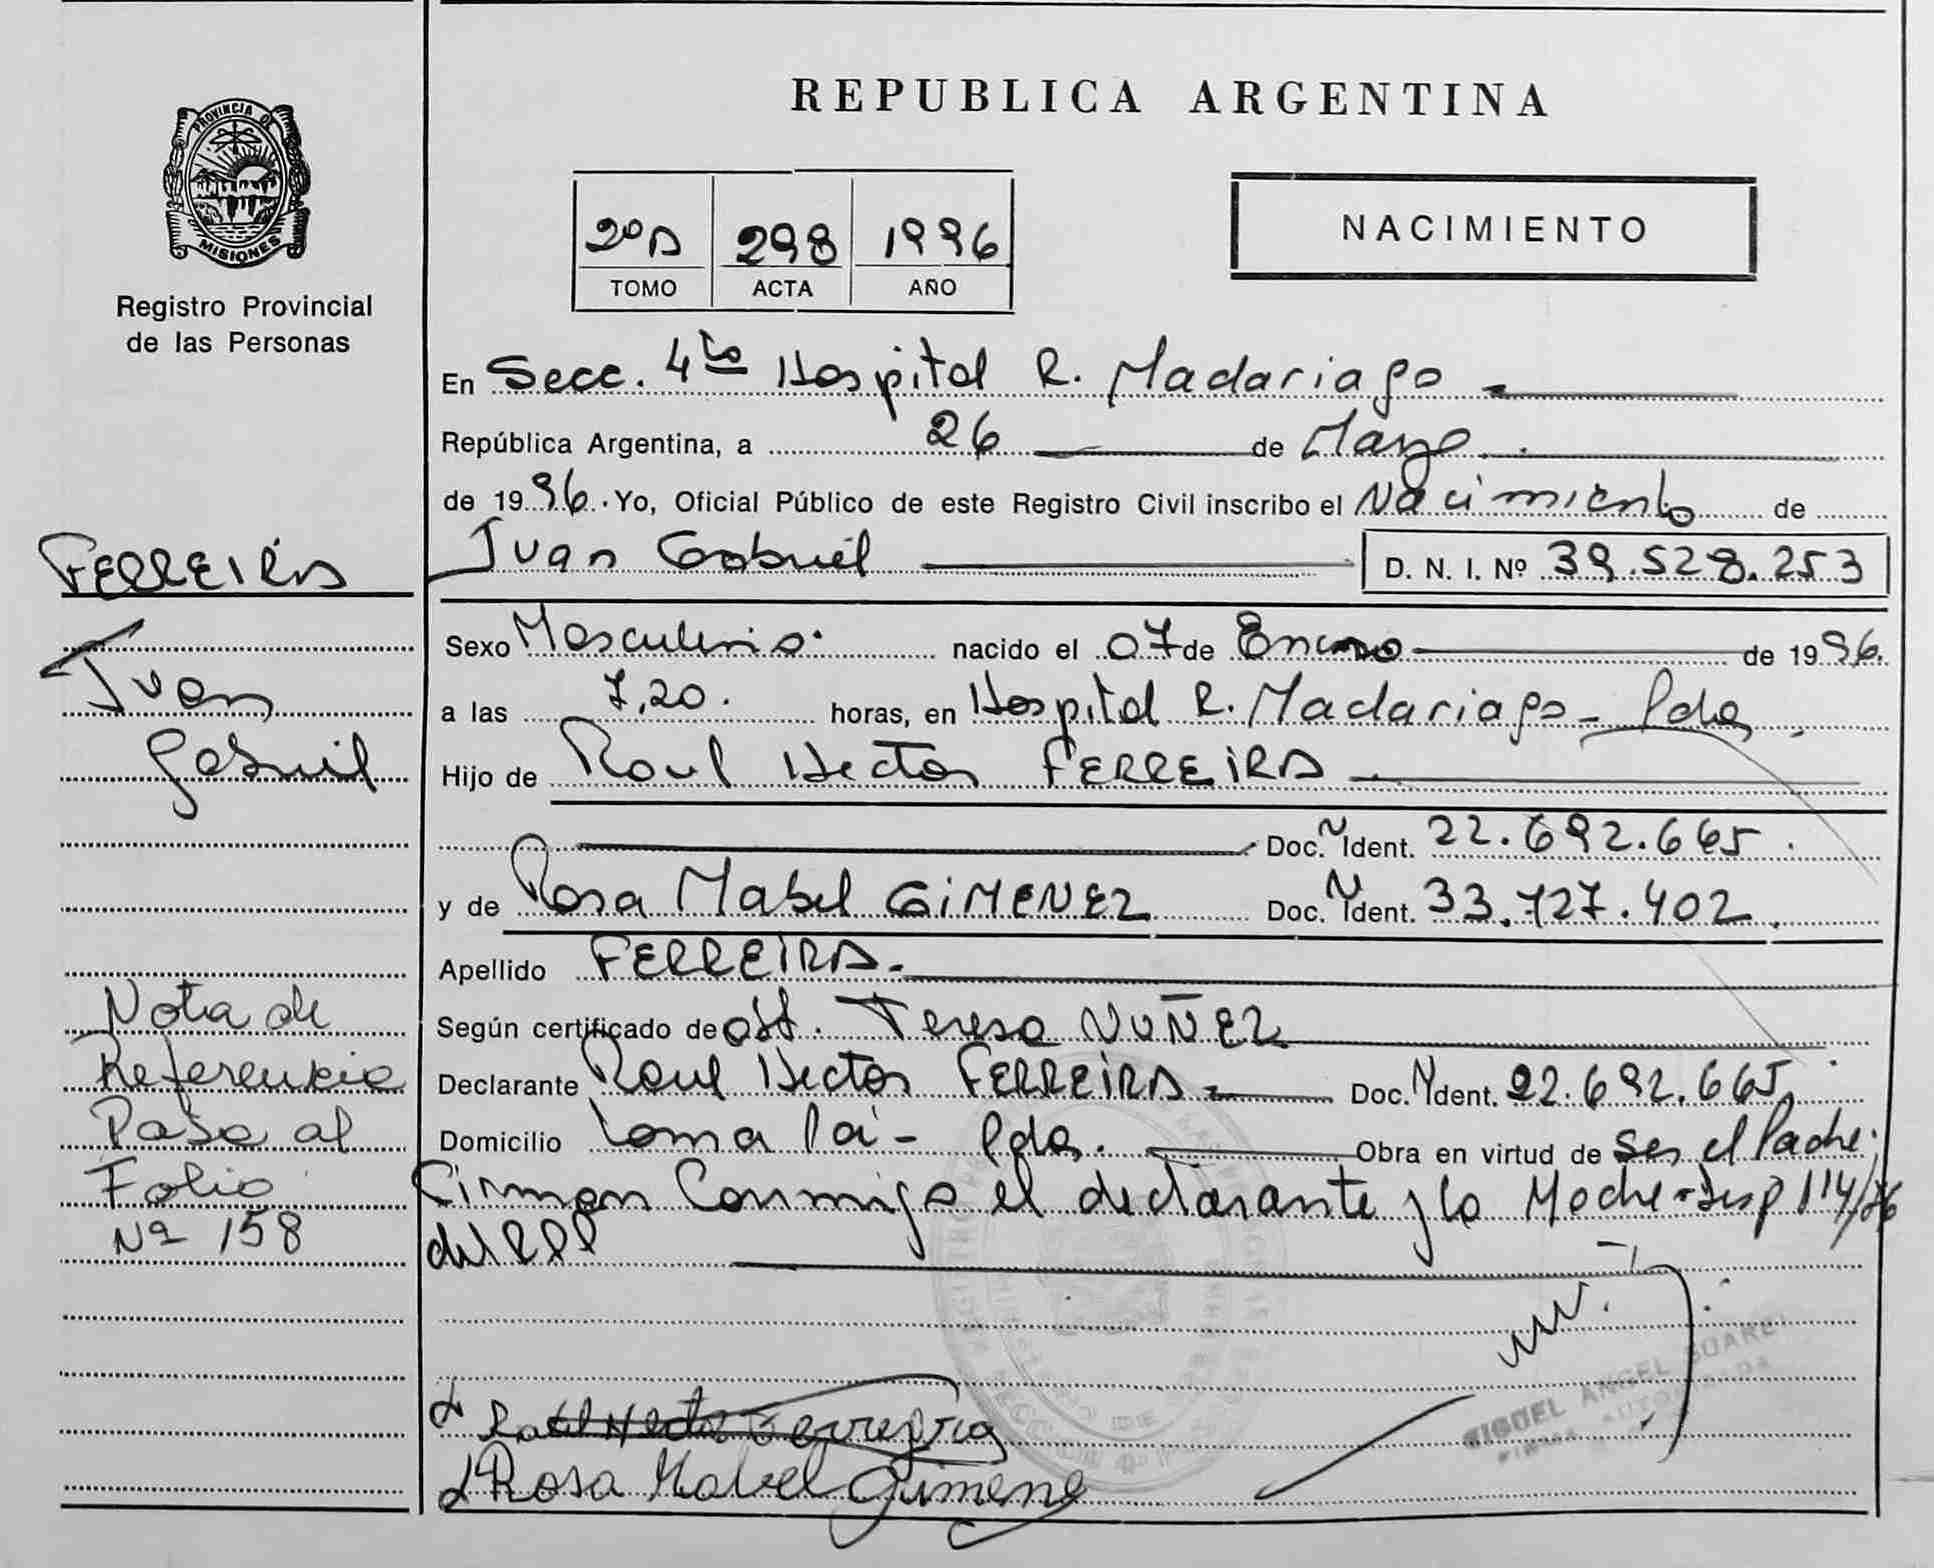 PROVINCIA DE
MISIONES
Registro Provincial
de las Personas
FERREIRA
Juan
Gabriel
Nota de
Referencia
Pasa al
Folio
Nº 158
REPUBLICA ARGENTINA
2º A 298 1996
TOMO ACTA AÑO
NACIMIENTO
En Secc. 4ta Hospital R. Madariaga
República Argentina, a 26 de Mayo
de 1996. Yo, Oficial Público de este Registro Civil inscribo el Nacimiento de
Juan Gabriel D. N. I. Nº 39.528.253
Sexo Masculino. nacido el 07 de Enero de 1996.
a las 7,20. horas, en Hospital R. Madariaga - Pdas
Hijo de Raul Hector FERREIRA
Doc. N Ident. 22.692.665.
y de Rosa Mabel GIMENEZ Doc. N Ident. 33.727.402.
Apellido FERREIRA.
Según certificado de Obst. Teresa NUÑEZ
Declarante Raul Hector FERREIRA Doc. N Ident. 22.692.665
Domicilio Loma Pai - Pdas. Obra en virtud de ser el Padre.
Firman Conmigo el declarante y la Madre - Disp 114/86
del RPP
Raul Hector Ferreira
Rosa Mabel Gimenez
MIGUEL ANGEL SUAREZ
FIRMA AUTORIZADA